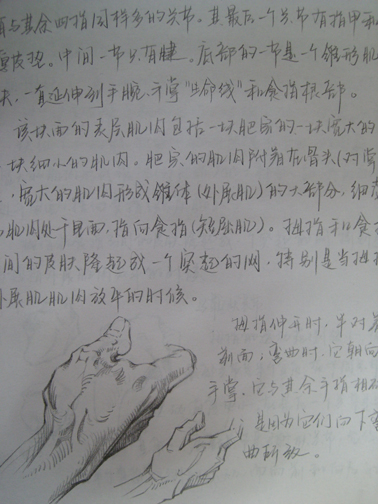 有与其余四指同样多的关节。其最后一个关节有指甲和
硬皮垫。中间一节只有腱。底部的一节是一个锥形肌
块,一直延伸到手腕、手掌“生命线”和食指根部。
该块面的表层肌肉包括一块肥富的一块宽大的
一块细小的肌肉。肥富的肌肉附着在骨头(对掌
,宽大的肌肉形成锥体(外展肌)的大部分,细
肌肉处于里面,指向食指(短屈肌)。拇指和食
间的皮肤隆起成一个突起的网,特别是当拇
外展肌肌肉放平的时候。
拇指伸平时,半对着
前面;弯曲时,它朝向
手掌,它与其余手指相
是因为它们向下弯
曲所致。